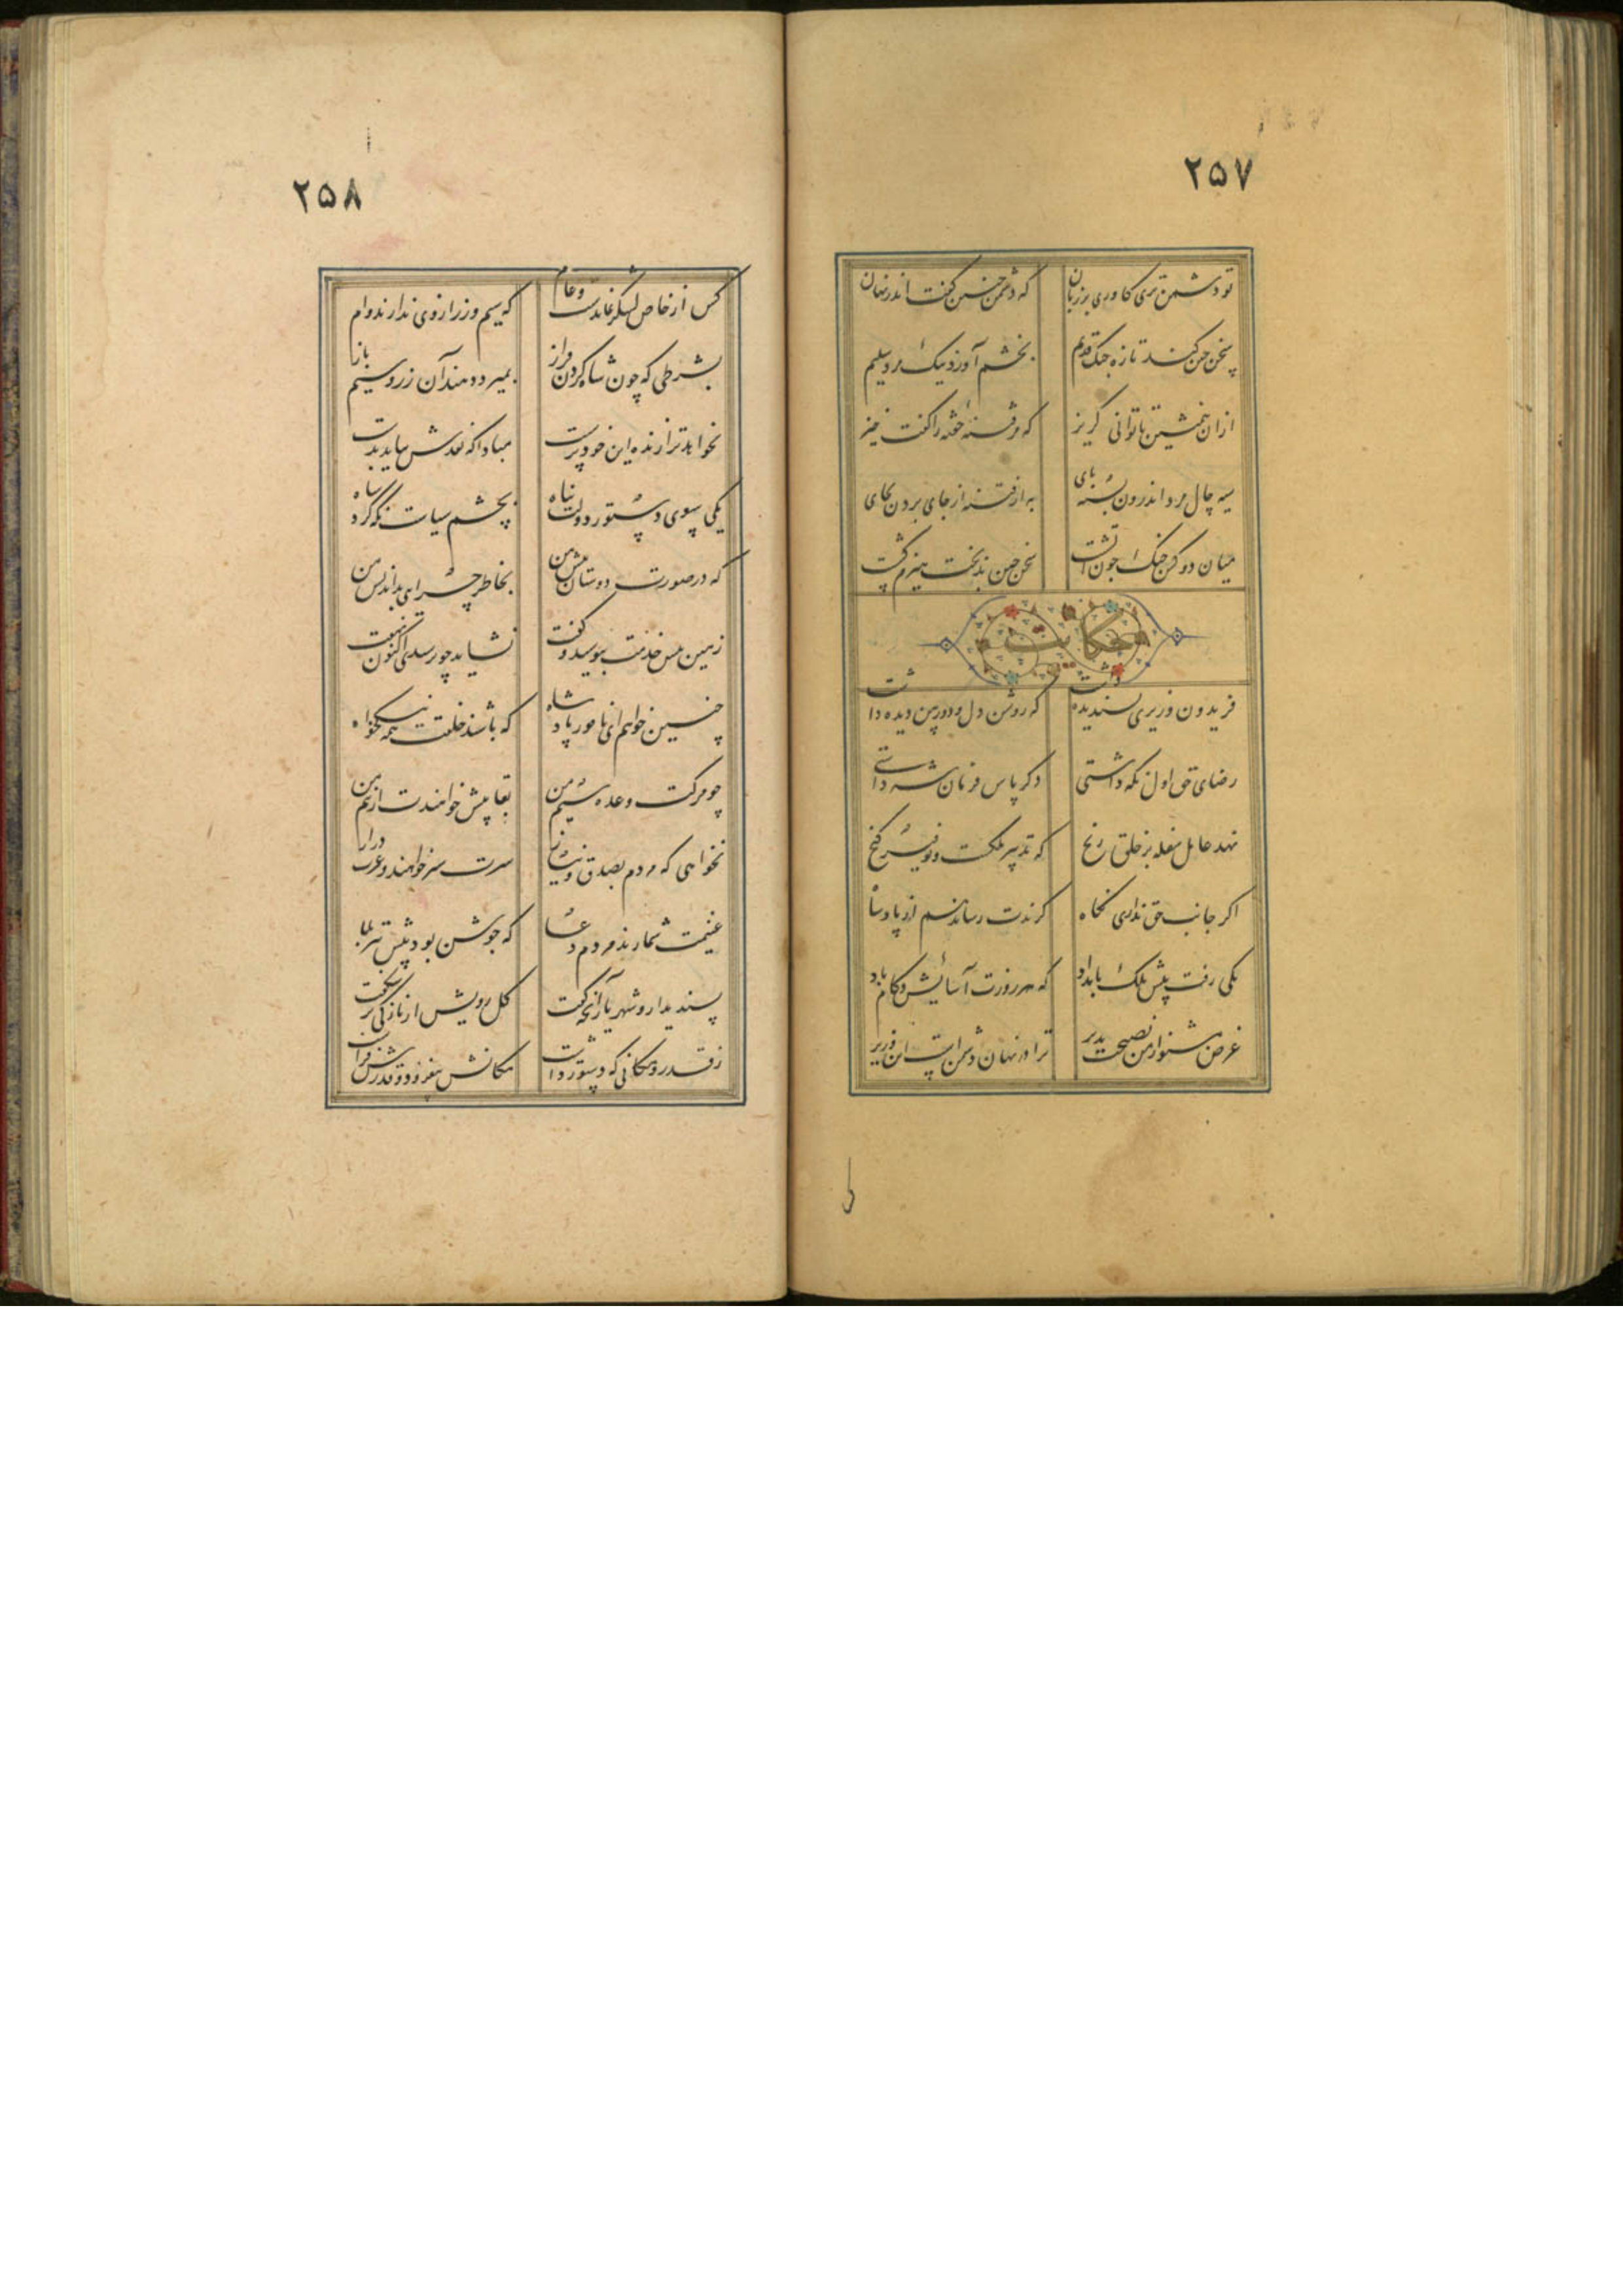 ۲۵۷
تو دشمن تری کاوری بر زبان که دشمن چنین گفت اندر نهان
سخن چین کند تازه جنگ قدیم بخشم آورد نیک مرد سلیم
ازان همنشین تا توانی گریز که مر فتنهٔ خفته را گفت خیز
سیه چال و مرد اندرون بسته پای به از فتنه از جای بردن بجای
میان دو کس جنگ چون آتشت سخن چین بدبخت هیزم کشست
حکایت
فریدون وزیری پسندیده داشت که روشن دل و دوربین دیده داشت
رضای حق اول نگه داشتی دگر پاس فرمان شه داشتی
نهد عامل سفله بر خلق رنج که تدبیر ملکست و توفیر گنج
اگر جانب حق نداری نگاه گزندت رساند هم از پادشاه
یکی رفت پیش ملک بامداد که هر روزت آسایش و کام باد
غرض مشنو از من نصیحت پذیر ترا در نهان دشمن است این وزیر
۲۵۸
کس از خاص لشکر نماندست و عام که سیم و زر از وی ندارند وام
بشرطی که چون شاه گردن فراز بمیرد دهند آن زر و سیم باز
نخواهد ترا زنده این خودپرست مبادا که نقدش نیاید بدست
یکی سوی دستور دولت پناه بچشم سیاست نگه کرد شاه
که در صورت دوستان پیش من بخاطر چرایی بداندیش من
زمین پیش خدمت ببوسید و گفت نشاید چو پرسیدی اکنون نهفت
چنین خواهم ای نامور پادشاه که باشند خلقت همه نیکخواه
چو مرگت وعده سیم من بقا بیش خواهندت از بیم من
نخواهی که مردم بصدق و نیاز سرت سبز خواهند و عمرت دراز
غنیمت شمارند مردم دعا که جوشن بود پیش تیر بلا
پسندید ازو شهریار آنچه گفت گل رویش از تازگی بر شکفت
ز قدر و مکانی که دستور داشت مکانش بیفزود و قدرش فراشت